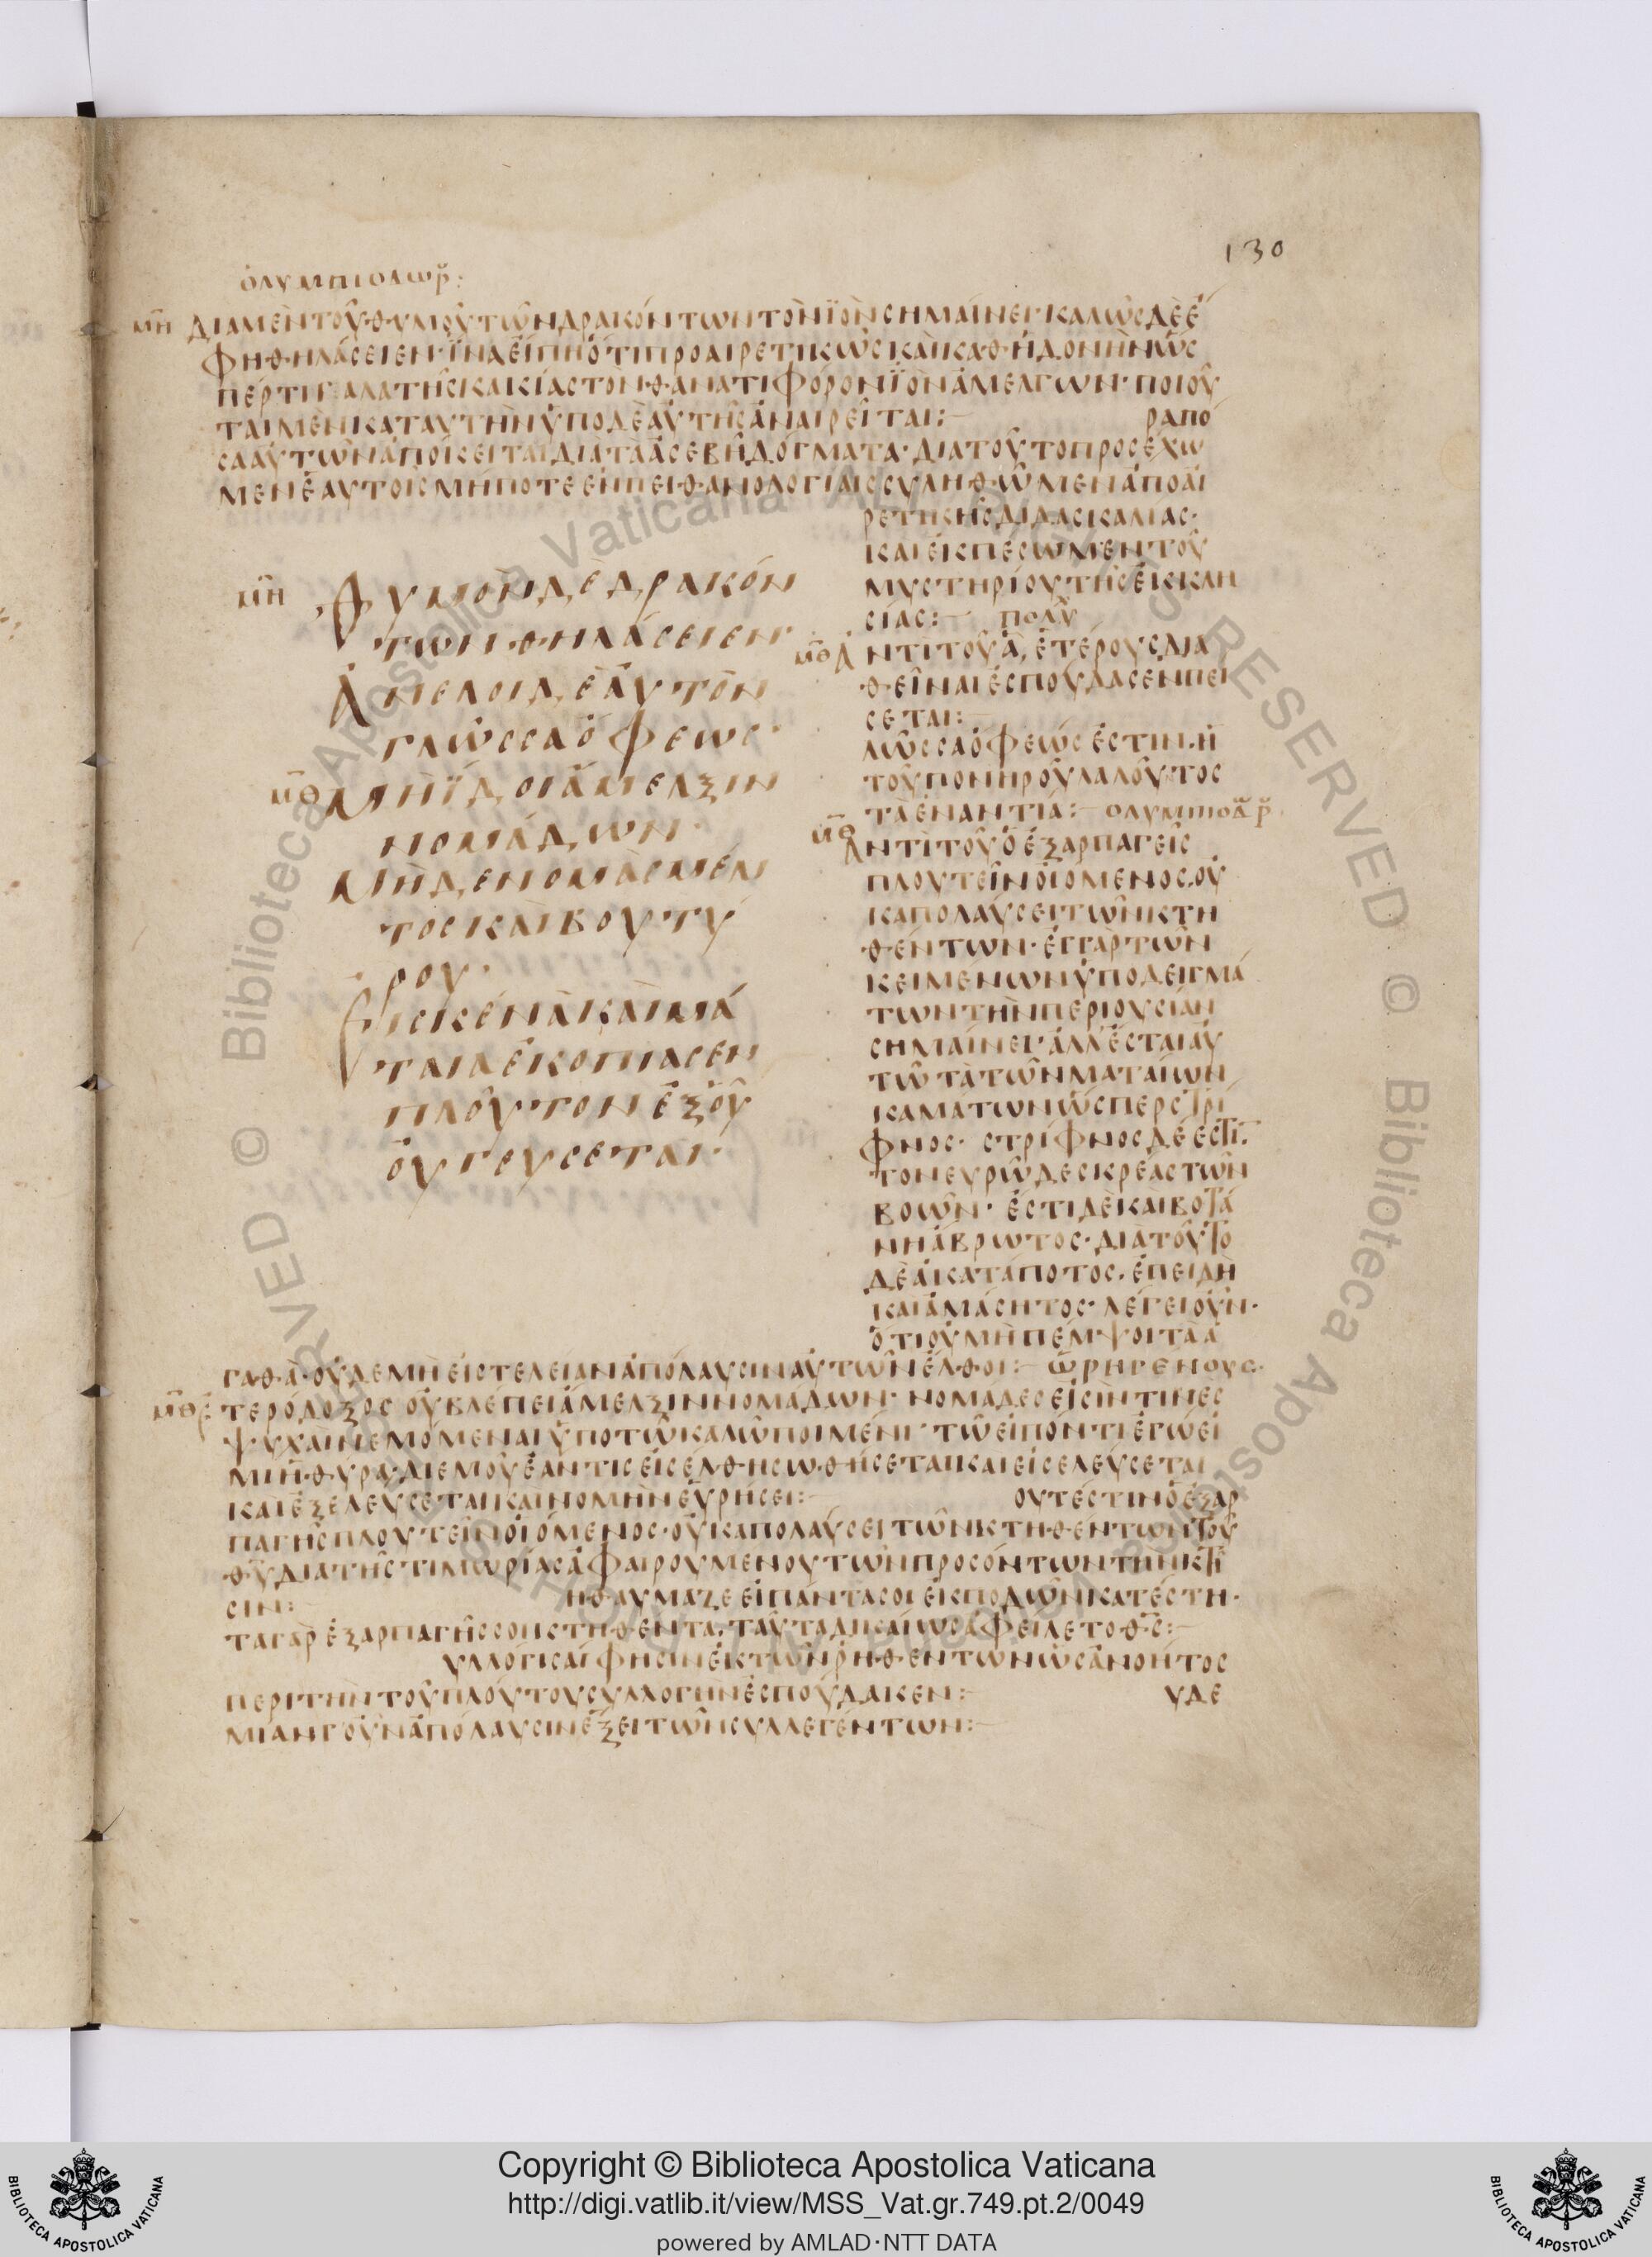 130
ὀλυμπιοδωρ̆:
μη ΔΙΑΜΕΝΤΟΥΘΥΜΟΥΤΩΝΔΡΑΚΟΝΤΩΝΤΟΝΙΟΝΣΗΜΑΙΝΕΙ·ΚΑΛΩΣΔΕΕ
ΦΗΘΗΛΑΣΕΙΕΝ·ΙΝΑΕΙΠΗΟΤΙΠΡΟΑΙΡΕΤΙΚΩΣΚΑΙΚΑΘΗΔΟΝΗΝΩΣ
ΠΕΡΤΙΓΑΛΑΤΗΣΚΑΚΙΑΣΤΟΝΘΑΝΑΤΙΦΟΡΟΝΙΟΝΑΜΕΛΓΩΝ·ΠΟΙΟΥ
ΤΑΙΜΕΝΚΑΤΑΥΤΗΝΥΠΟΔΕΑΥΤΗΣΑΝΑΙΡΕΙΤΑΙ:— ΡΑΠΟ
ΣΑΑΥΤΩΝΑΠΟΚΕΙΤΑΙΔΙΑΤΑΑΣΕΒΗΔΟΓΜΑΤΑ·ΔΙΑΤΟΥΤΟΠΡΟΣΕΧΩ
ΜΕΝΕΑΥΤΟΙΣΜΗΠΟΤΕΕΝΠΕΙΘΑΝΟΛΟΓΙΑΙΣΣΥΛΗΘΩΜΕΝΑΠΟΑΙ
ΡΕΤΙΚΗΣΔΙΔΑΣΚΑΛΙΑΣ·
ΚΑΙΕΚΠΕΣΩΜΕΝΤΟΥ
μη ΘΥΜΟΝΔΕΔΡΑΚΟΝ
ΤΩΝΘΗΛΑΣΕΙΕΝ·
ΑΝΕΛΟΙΔΕΑΥΤΟΝ
ΓΛΩΣΣΑΟΦΕΩΣ·
μθ ΜΗΙΔΟΙΑΜΕΛΞΙΝ
ΝΟΜΑΔΩΝ·
ΜΗΔΕΝΟΜΑΣΜΕΛΙ
ΤΟΣΚΑΙΒΟΥΤΥ
ΡΟΥ·
ΕΙΣΚΕΝΑΚΑΙΜΑ
ΤΑΙΑΕΚΟΠΙΑΣΕΝ
ΠΛΟΥΤΟΝΕΞΟΥ
ΟΥΓΕΥΣΕΤΑΙ·
ΜΥΣΤΗΡΙΟΥΤΗΣΕΚΚΛΗ
ΣΙΑΣ:— ΠΟΛΥ
μθ ΑΝΤΙΤΟΥΑ,ΕΤΕΡΟΥΣΔΙΑ
ΘΕΙΝΑΙΕΣΠΟΥΔΑΣΕΝΠΕΙ
ΣΕΤΑΙ:—
ΛΩΣΣΑΟΦΕΩΣΕΣΤΙΝ·Η
ΤΟΥΠΟΝΗΡΟΥΛΑΛΟΥΝΤΟΣ
ΤΑΕΝΑΝΤΙΑ:— ΟΛΥΜΠΙΟΔΡ
μθ ΑΝΤΙΤΟΥΟΕΞΑΡΠΑΓΕΙΣ
ΠΛΟΥΤΕΙΝΟΙΟΜΕΝΟΣ·ΟΥ
ΚΑΠΟΛΑΥΣΕΙΤΩΝΚΤΗ
ΘΕΝΤΩΝ·ΕΓΓΑΡΤΩΝ
ΚΕΙΜΕΝΩΝΥΠΟΔΕΙΓΜΑ
ΤΩΝΤΗΝΠΕΡΙΟΥΣΙΑΝ
ΣΗΜΑΙΝΕΙ·ΑΛΛΕΣΤΑΙΑΥ
ΤΩΤΑΤΩΝΜΑΤΑΙΩΝ
ΚΑΜΑΤΩΝΩΣΠΕΡΣΤΡΙ
ΦΝΟΣ· ΣΤΡΙΦΝΟΣΔΕΕΣΤΙ·
ΤΟΝΕΥΡΩΔΕΣΚΡΕΑΣΤΩΝ
ΒΟΩΝ· ΕΣΤΙΔΕΚΑΙΒΟΤΑ
ΝΗΑΒΡΩΤΟΣ·ΔΙΑΤΟΥΤΟ
ΔΕΑΚΑΤΑΠΟΤΟΣ·ΕΠΕΙΔΗ
ΚΑΙΑΜΑΣΗΤΟΣ·ΛΕΓΕΙΟΥΝ·
ΟΤΙΟΥΜΗΠΕΜΨΟΙΤΑΑ
ΓΑΘΑ·ΟΥΔΕΜΗΕΙΣΤΕΛΕΙΑΝΑΠΟΛΑΥΣΙΝΑΥΤΩΝΕΛΘΟΙ:— ΩΡΗΓΕΝΟΥΣ·
μθ ΕΤΕΡΟΔΟΞΟΣΟΥΒΛΕΠΕΙΑΜΕΛΞΙΝΝΟΜΑΔΩΝ· ΝΟΜΑΔΕΣΕΙΣΙΝΤΙΝΕΣ
ΨΥΧΑΙΝΕΜΟΜΕΝΑΙΥΠΟΤΩΚΑΛΩΠΟΙΜΕΝΙ· ΤΩΕΙΠΟΝΤΙΕΓΩΕΙ
ΜΙΗΘΥΡΑ·ΔΙΕΜΟΥΕΑΝΤΙΣΕΙΣΕΛΘΗΣΩΘΗΣΕΤΑΙΚΑΙΕΙΣΕΛΕΥΣΕΤΑΙ
ΚΑΙΕΞΕΛΕΥΣΕΤΑΙΚΑΙΝΟΜΗΝΕΥΡΗΣΕΙ:— ΟΥΤΕΣΤΙΝΟΕΞΑΡ
ΠΑΓΗΣΠΛΟΥΤΕΙΝΟΙΟΜΕΝΟΣ·ΟΥΚΑΠΟΛΑΥΣΕΙΤΩΝΚΤΗΘΕΝΤΩΝΤΟΥ
ΘΥΔΙΑΤΗΣΤΙΜΩΡΙΑΣΑΦΑΙΡΟΥΜΕΝΟΥΤΩΝΠΡΟΣΟΝΤΩΝΤΗΝΚΤΗ
ΣΙΝ:— ΗΘΑΥΜΑΖΕΕΙΠΑΝΤΑΣΟΙΕΚΠΟΔΩΝΚΑΤΕΣΤΗ·
ΤΑΓΑΡΕΞΑΡΠΑΓΗΣΣΟΙΚΤΗΘΕΝΤΑ·ΤΑΥΤΑΔΙΚΑΙΩΣΑΦΕΙΛΕΤΟΘΣ:—
ΥΛΛΟΓΙΣΑΙΦΗΣΙΝΕΚΤΩΝΡΗΘΕΝΤΩΝΩΣΑΝΟΗΤΟΣ
ΠΕΡΙΤΗΝΤΟΥΠΛΟΥΤΟΥΣΥΛΛΟΓΗΝΕΣΠΟΥΔΑΚΕΝ:— ΥΔΕ
ΜΙΑΝΓΟΥΝΑΠΟΛΑΥΣΙΝΕΞΕΙΤΩΝΣΥΛΛΕΓΕΝΤΩΝ:—
Copyright © Biblioteca Apostolica Vaticana
http://digi.vatlib.it/view/MSS_Vat.gr.749.pt.2/0049
powered by AMLAD·NTT DATA